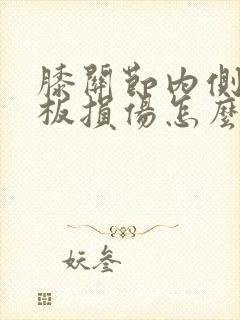 膝關節內側
板損傷怎麼
妖叁